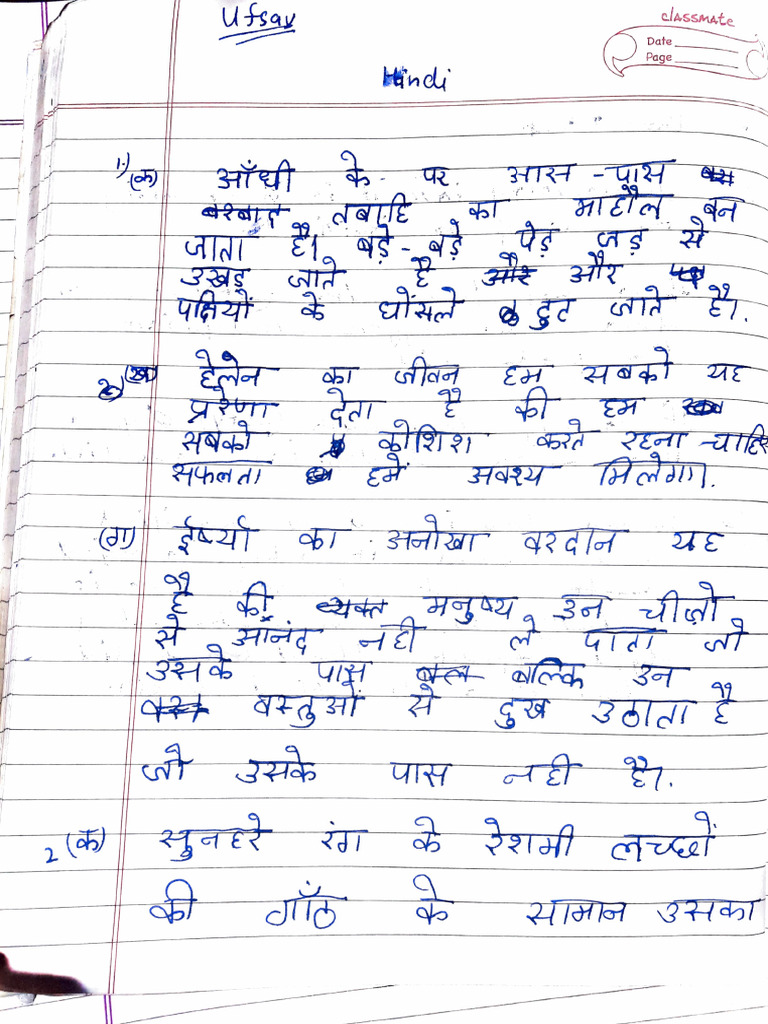 Utsav
classmate
Date
Page
Hindi
1.) (क) आँधी के पर आस-पास
बरबाद तबाहि का माहौल बन
जाता है। बड़े-बड़े पेड़ जड़ से
उखड़ जाते है और और
पक्षियों के घोंसले टुट जाते है।
(ख) हेलेन का जीवन हम सबको यह
प्ररेणा देता है की हम
सबको कोशिश करते रहना चाहिए
सफलता हमें अवश्य मिलेगा।
(ग) ईर्ष्या का अनोखा वरदान यह
है की व्यक्त मनुष्य उन चीज़ो
से आंनंद नही ले पाता जो
उसके पास बल्कि उन
वस्तुओं से दुख उठाता है
जो उसके पास नही है।
2 (क) सुनहरे रंग के रेशमी लच्छों
की गाँठ के सामान उसका